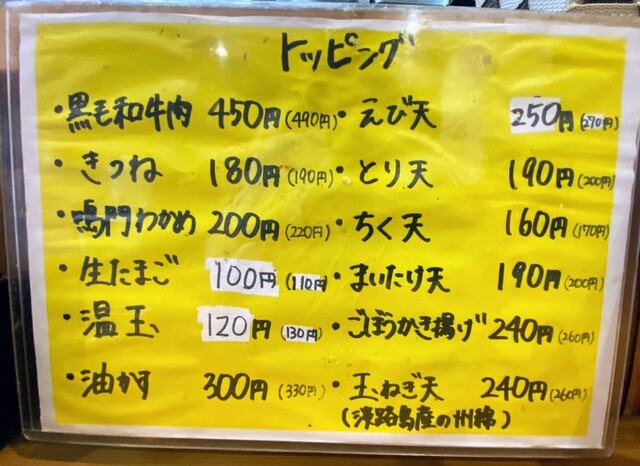 トッピング
・黒毛和牛肉 450円(490円)
・きつね 180円(190円)
・鳴門わかめ 200円(220円)
・生たまご 100円(110円)
・温玉 120円(130円)
・油かす 300円(330円)
・えび天 250円(270円)
・とり天 190円(200円)
・ちく天 160円(170円)
・まいたけ天 190円(200円)
・ごぼうかき揚げ 240円(260円)
・玉ねぎ天 240円(260円)
(淡路島産の州綿)